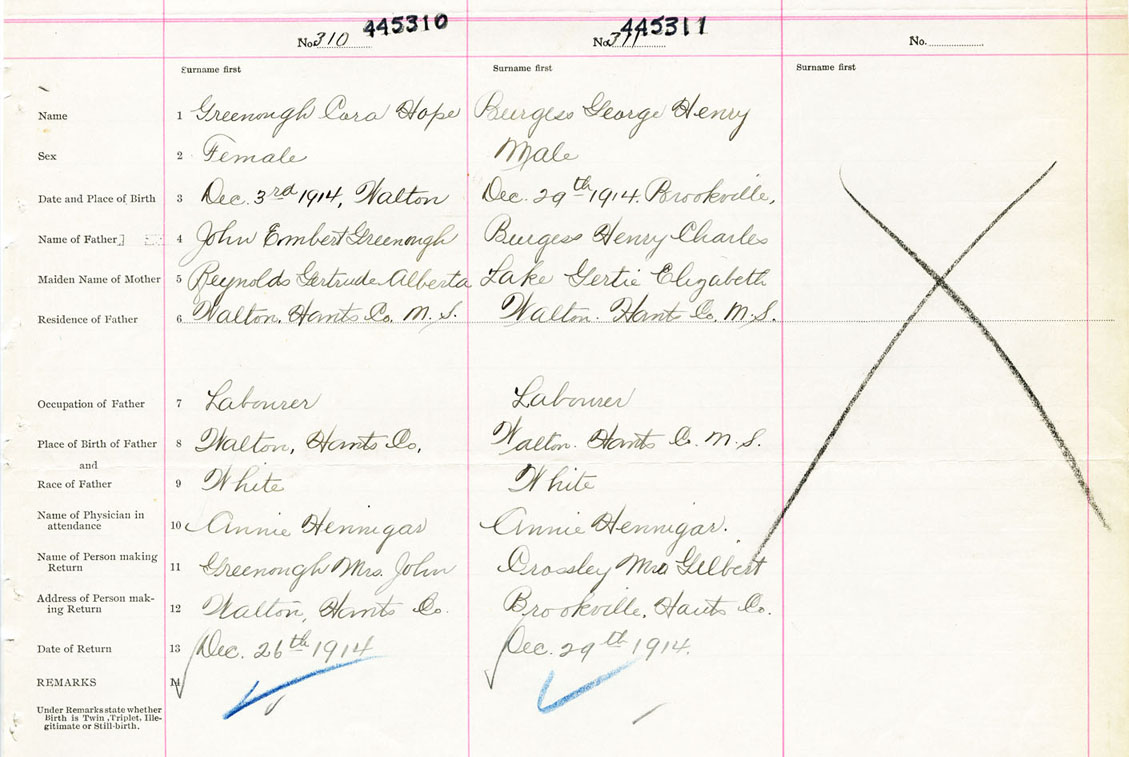 445310 445311
No. 310 No. 311 No.
Surname first Surname first Surname first
Name 1 Greenough Cora Hope Burgess George Henry
Sex 2 Female Male
Date and Place of Birth 3 Dec. 3rd 1914, Walton Dec. 29th 1914. Brookville,
Name of Father 4 John Embert Greenough Burgess Henry Charles
Maiden Name of Mother 5 Reynolds Gertrude Alberta Lake Gertie Elizabeth
Residence of Father 6 Walton, Hants Co. N.S. Walton. Hants Co. N.S.
Occupation of Father 7 Labourer Labourer
Place of Birth of Father 8 Walton, Hants Co, Walton. Hants Co. N.S.
and
Race of Father 9 White White
Name of Physician in
attendance 10 Annie Hennigar Annie Hennigar.
Name of Person making
Return 11 Greenough Mrs. John Crossley Mrs Gilbert
Address of Person mak-
ing Return 12 Walton, Hants Co. Brookville, Hants Co.
Date of Return 13 Dec. 26th 1914 Dec. 29th 1914.
REMARKS 14
Under Remarks state whether
Birth is Twin, Triplet, Ille-
gitimate or Still-birth.